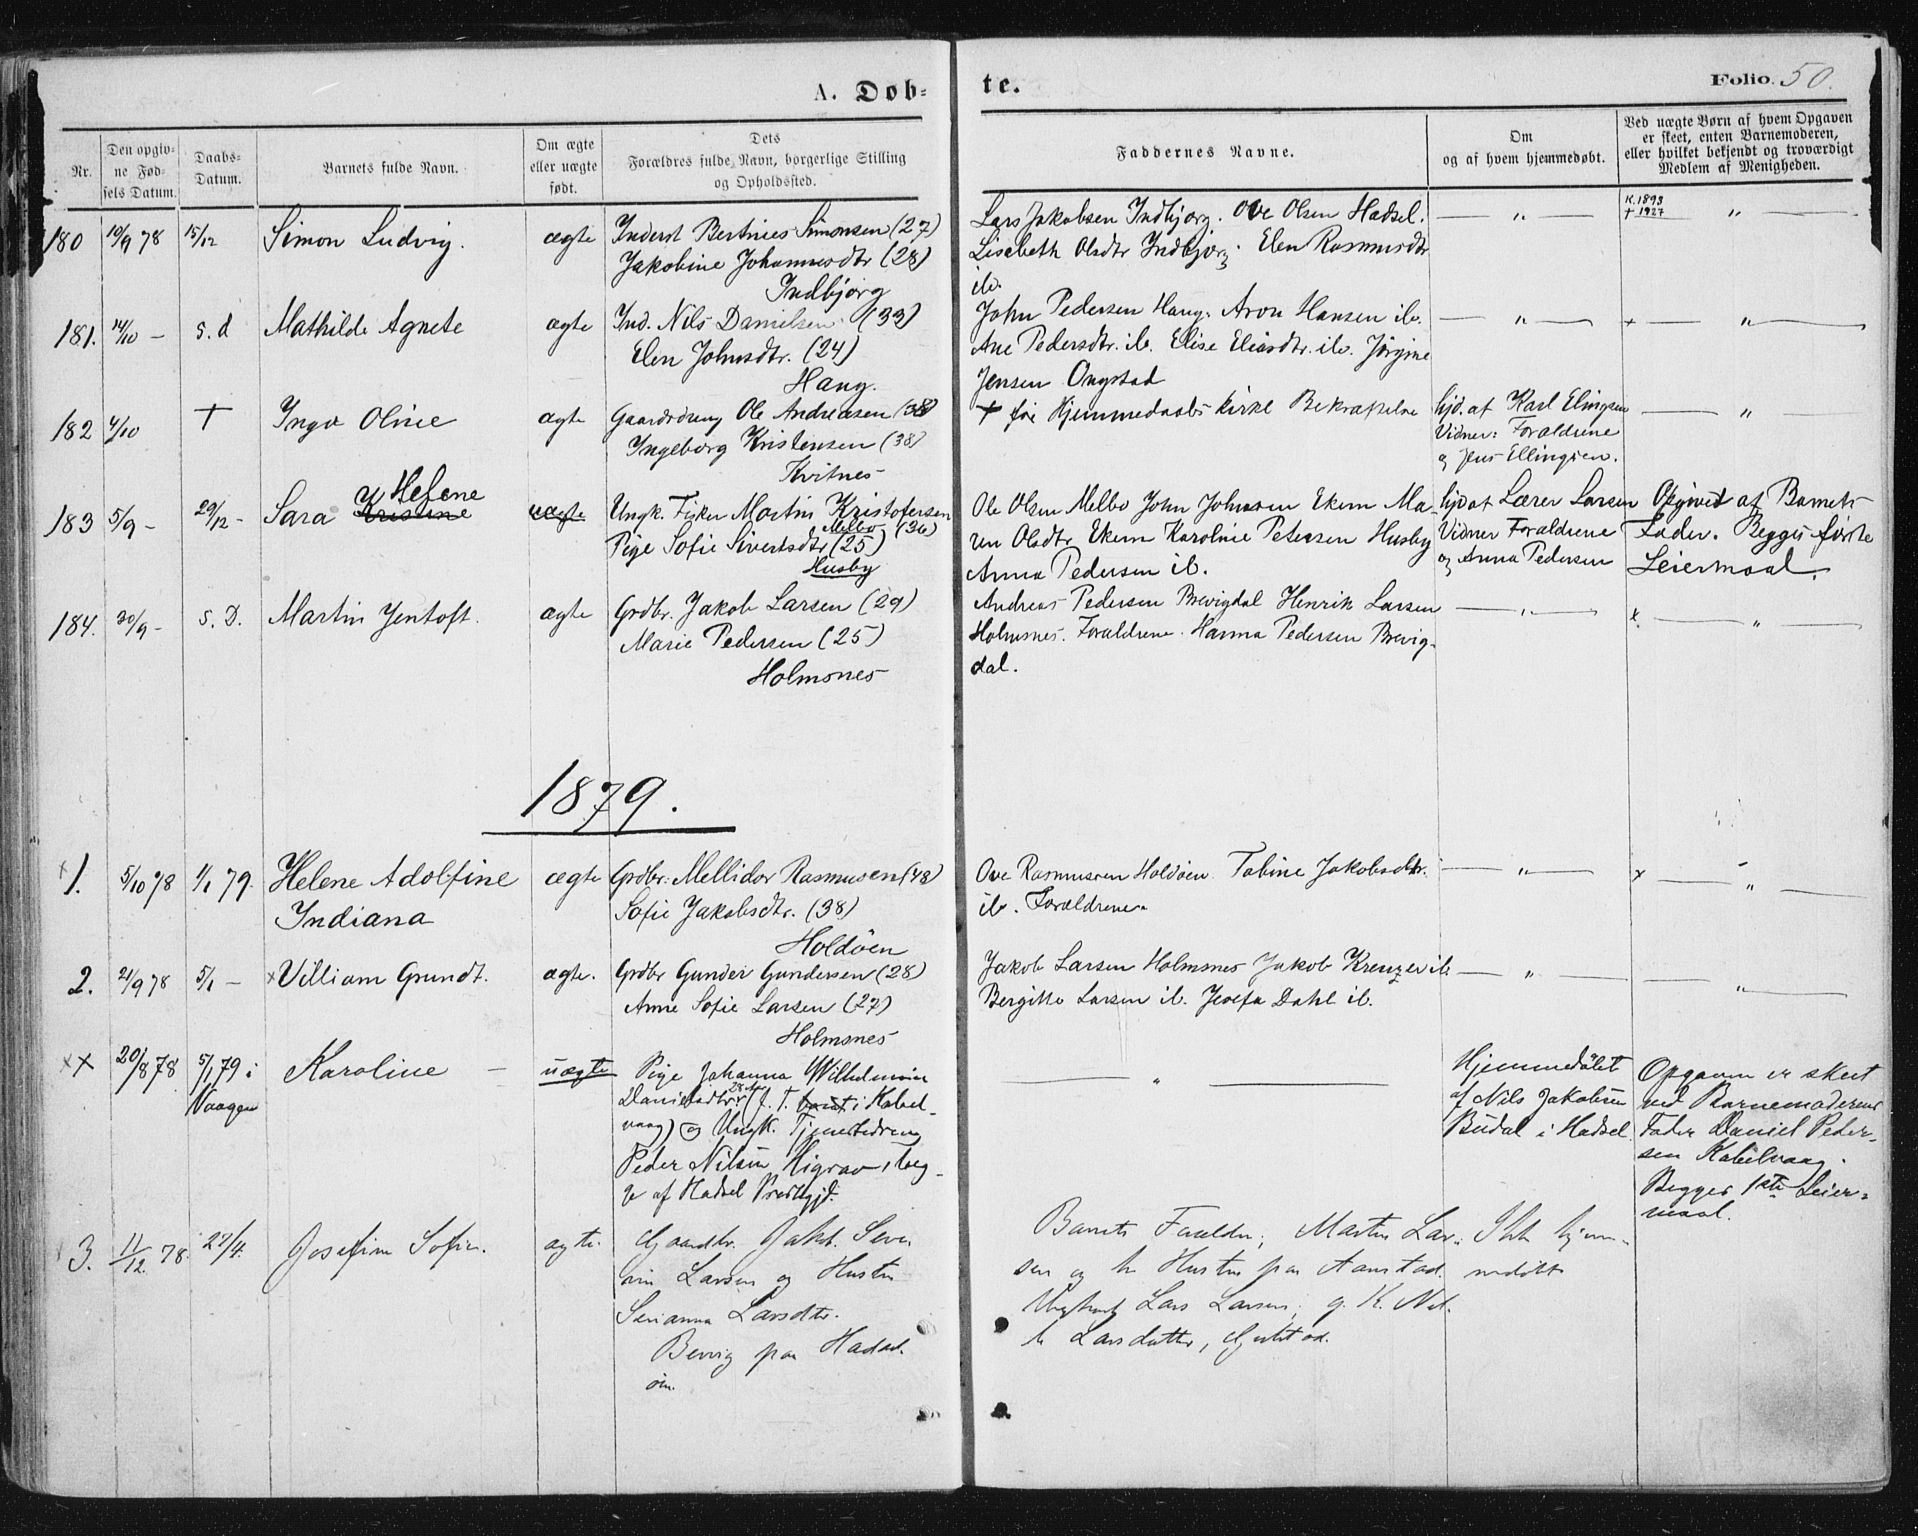 A. Døb-
te.
Folio. 50.
Nr.
Den opgiv-
ne Fød-
sels Datum.
Daabs-
Datum.
Barnets fulde Navn.
Om ægte
eller uægte
født.
Dets
Forældres fulde Navn, borgerlige Stilling
og Opholdssted.
Faddernes Navne.
Om
og af hvem hjemmedøbt.
Ved uægte Børn af hvem Opgaven
er skeet, enten Barnemoderen,
eller hvilket bekjendt og troværdigt
Medlem af Menigheden.
180 10/9 78 15/12 Simon Ludvig. ægte
Inderst Bertines Simonsen (27)
Jakobine Johannesdtr (28)
Indbjorg
Lars Jakobsen Indbjorg. Ove Olsen Hadsel.
Lisebeth Olsdtr Indbjorg. Elen Rasmusdtr
ib.
— " —
K. 1893
+ 1927
" —
181. 14/10 — s. d Mathilde Agnete ægte
Ind. Nils Danielsen (33)
Elen Johnsdtr. (24)
Haug.
John Pedersen Haug. Aron Hansen ib.
Ane Pedersdtr. ib. Elise Eliasdtr. ib. Jørgine
Jensen Ongstad
— " —
+ — " —
182 4/10 + Inga Oline ægte
Gaardrdreng Ole Andreasen (38)
Ingeborg Kristensen (38)
Kvitnes
+ før Hjemmedaabs kirke Bekræftelse
hjd. af Karl Elingsen
Vidner: Forældrene
og Jens Ellingsen.
— "
183 5/9 - 29/12 - Sara Kristine Helene uægte
Ungk. Fisker Martin Kristofersen
Melbo (36)
Pige Sofie Sivertsdtr (25)
Husby
Ole Olsen Melbo John Johnsen Ekern Ma-
ren Olsdtr Ekern Karoline Petersen Husby
Anna Pedersen ib.
hjd af Lærer Larsen
Vidner Forældrene
og Anna Pedersen
Opgivet af Barnets
Fader. Begges første
Leiermaal.
184. 30/9 - s. D. Martin Jentoft. ægte
Grdbr. Jakob Larsen (29)
Marie Pedersen (25)
Holmsnes
Andreas Pedersen Brevigdal Henrik Larsen
Holmsnes. Forældrene. Hanna Pedersen Brevig-
dal.
— " —
x. — " —
1879.
x 1. 5/10 78 1/1 79. Helene Adolfine
Indiana
ægte
Grdbr. Mellidor Rasmusen (48)
Sofie Jakobsdtr. (38)
Holdöen
Ove Rasmussen Holdöen. Tobine Jakobsdtr.
ib. Forældrene.
— " —
x — " —
2. 21/9 78 5/1 — x Villiam Grundt. ægte.
Grdbr Gunder Gundersen (28)
Anne Sofie Larsen (27)
Holmsnes
Jakob Larsen Holmsnes Jakob Kreuzer ib
Bergitte Larsen ib. Josefa Dahl ib.
— " —
— " —
xx 20/8 78 5/1 79 i
Vaagen
Karoline — uægte
Pige Johanna Wilhelmine
Danielsdtr 28 Aar (f. T. i Kabel-
vaag) og Ungk. Tjenestedreng
Peder Nilsen Higrav, beg-
ge af Hadsel Præstegjd.
— " —
Hjemmedöbt
af Nils Jakobsen
Budal i Hadsel
Opgaven er skeet
ved Barnemoderens
Fader Daniel Peder-
sen Kabelvaag.
Begges 1ste Leier-
maal.
3. 11/12 78. 27/4. Josefine Sofie. ægte.
Gaardbr. Jakob Seve-
rin Larsen og Hustru
Serianna Larsdtr.
Bervig paa Hadsel-
öen
Barnets Forældre, Martin Lar-
sen og Hustru paa Aanstad.
Ungkarl Lars Larsen, K.
Larsdatter, Gjelstad.
Ikke hjem-
medöbt